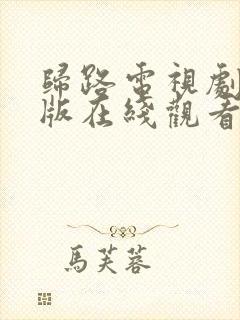 歸路電視劇
版在綫觀看
馬芙蓉